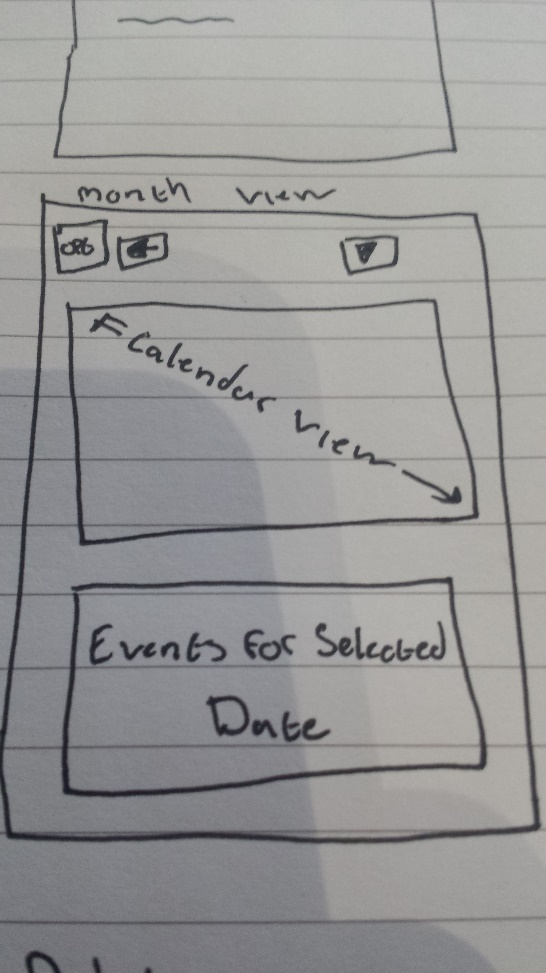 month view
Calendar View
Events For Selected
Date